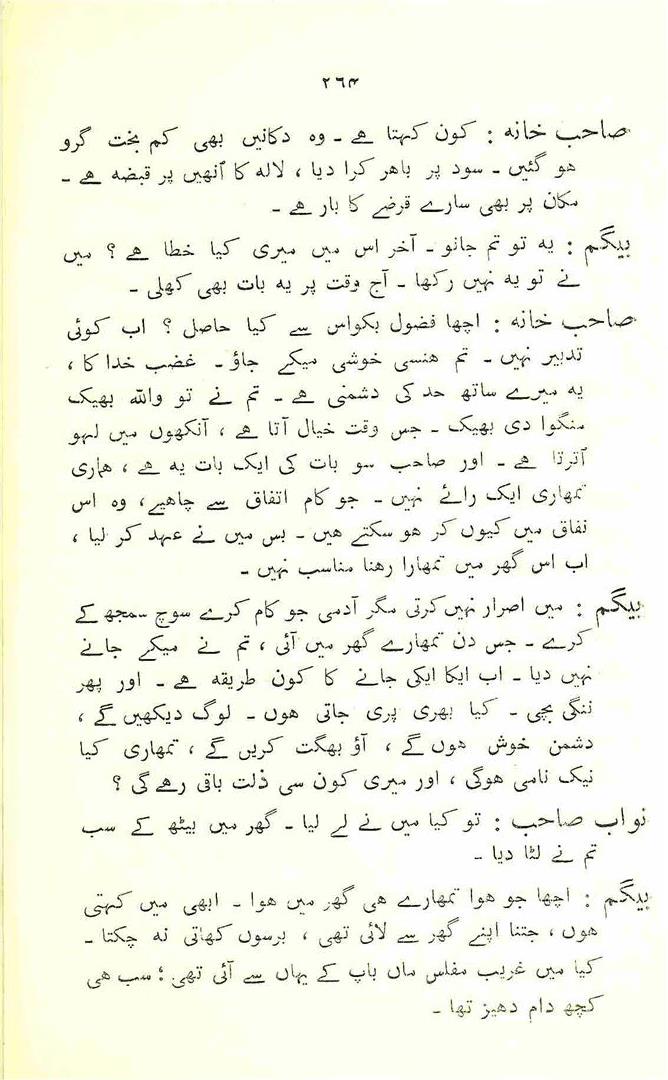 ۲۶۴
صاحب خانہ : کون کہتا ہے ۔ وہ دکانیں بھی کم بخت گرو
ہو گئیں ۔ سود پر باھر کرا دیا ، لالہ کا اُنھیں پر قبضہ ہے ۔
مکان پر بھی سارے قرضے کا بار ہے ۔
بیگم : یہ تو تم جانو ۔ آخر اس میں میری کیا خطا ہے ؟ میں
نے تو یہ نہیں رکھا ۔ آج وقت پر یہ بات بھی کھلی ۔
صاحب خانہ : اچھا فضول بکواس سے کیا حاصل ؟ اب کوئی
تدبیر نہیں ۔ تم ھنسی خوشی میکے جاؤ ۔ غضب خدا کا ،
یہ میرے ساتھ حد کی دشمنی ہے ۔ تم نے تو واللہ بھیک
منگوا دی بھیک ۔ جس وقت خیال آتا ہے ، آنکھوں میں لہو
اُترتا ہے ۔ اور صاحب سو بات کی ایک بات یہ ہے ، ھماری
تمھاری ایک رائے نہیں ۔ جو کام اتفاق سے چاھیے ، وہ اس
نفاق میں کیوں کر ھو سکتے ھیں ۔ بس میں نے عہد کر لیا ،
اب اس گھر میں تمھارا رھنا مناسب نہیں ۔
بیگم : میں اصرار نہیں کرتی مگر آدمی جو کام کرے سوچ سمجھ کے
کرے ۔ جس دن تمھارے گھر میں آئی ، تم نے میکے جانے
نہیں دیا ۔ اب ایکا ایکی جانے کا کون طریقہ ہے ۔ اور پھر
ننگی بچی ۔ کیا بھری پری جاتی ھوں ۔ لوگ دیکھیں گے ،
دشمن خوش ھوں گے ، آؤ بھگت کریں گے ، تمھاری کیا
نیک نامی ھوگی ، اور میری کون سی ذلت باقی رھے گی ؟
نواب صاحب : تو کیا میں نے لے لیا ۔ گھر میں بیٹھ کے سب
تم نے لٹا دیا ۔
بیگم : اچھا جو ھوا تمھارے ھی گھر میں ھوا ۔ ابھی میں کہتی
ھوں ، جتنا اپنے گھر سے لائی تھی ، برسوں کھاتی نہ چکتا ۔
کیا میں غریب مفلس ماں باپ کے یہاں سے آئی تھی ؛ سب ھی
کچھ دام دھیز تھا ۔